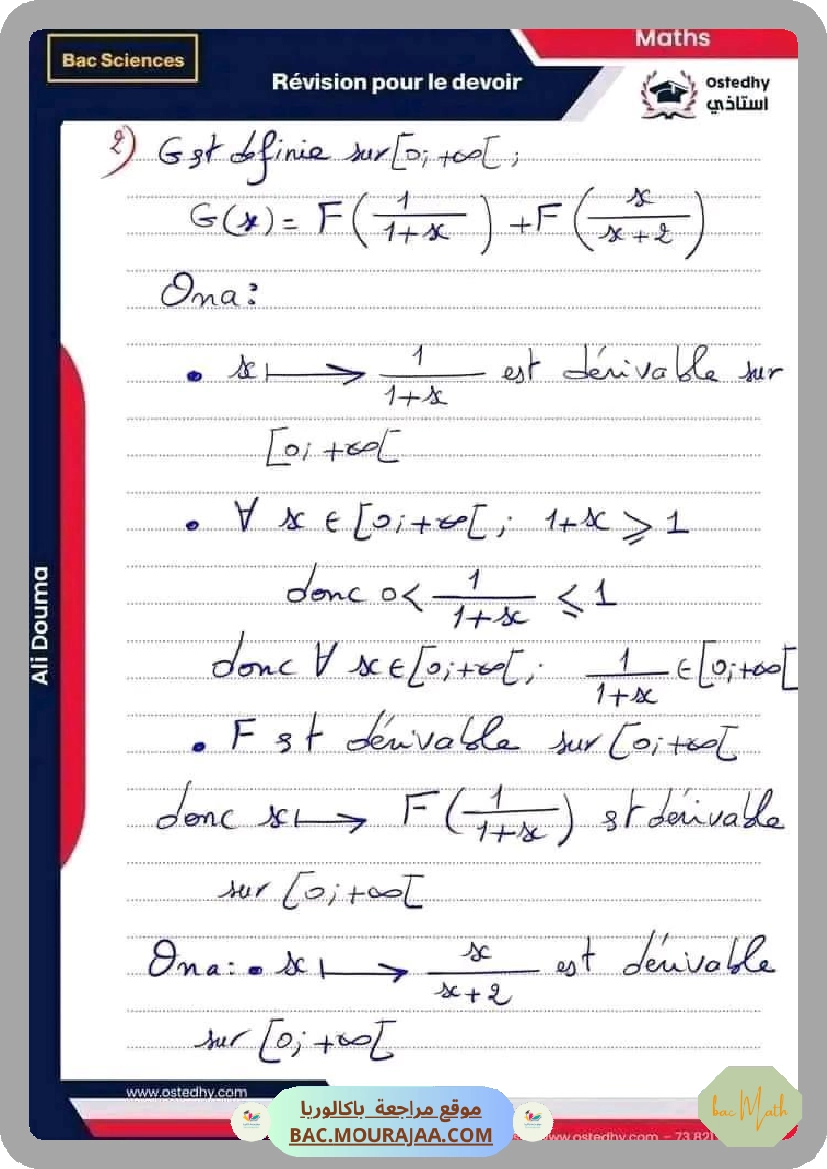 Maths
Bac Sciences
Révision pour le devoir
Ostedhy
استاذي
2) G est définie sur [0; +∞[ ;
G(x) = F(1/(1+x)) + F(x/(x+2))
On a :
• x ⟼ 1/(1+x) est dérivable sur
[0; +∞[
• ∀ x ∈ [0; +∞[ ; 1+x ⩾ 1
donc 0 < 1/(1+x) ⩽ 1
donc ∀ x ∈ [0; +∞[ ; 1/(1+x) ∈ [0; +∞[
• F est dérivable sur [0; +∞[
donc x ⟼ F(1/(1+x)) est dérivable
sur [0; +∞[
On a : • x ⟼ x/(x+2) est dérivable
sur [0; +∞[
Ali Douma
www.ostedhy.com
موقع مراجعة باكالوريا
BAC.MOURAJAA.COM
www.ostedhy.com – 73.821
bac Math